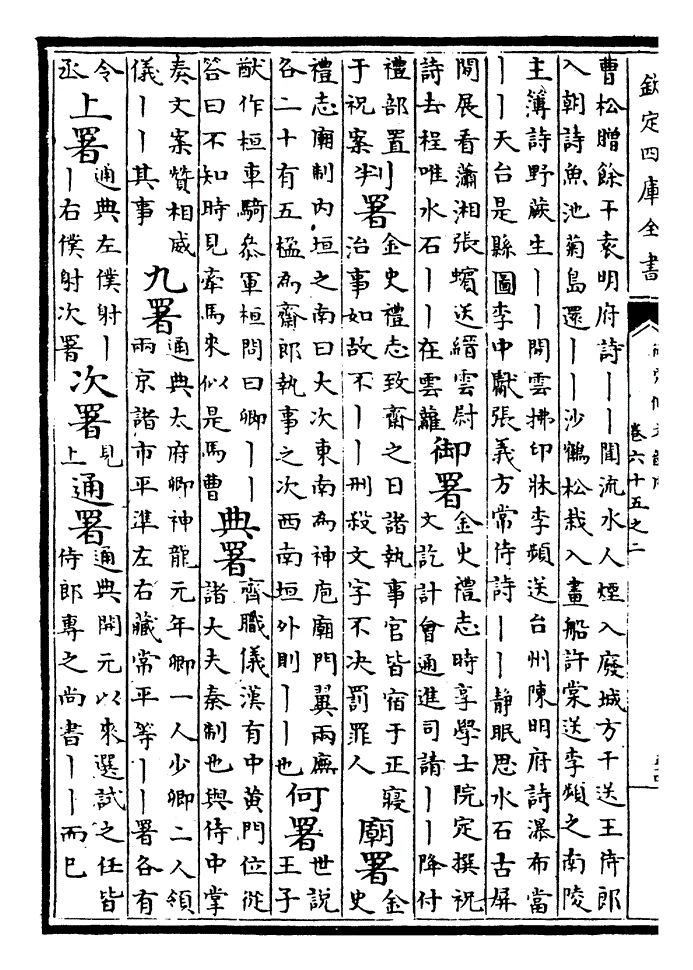 欽定四庫全書
卷六十五之二
曹松贈餘干袁明府詩丨丨閒流水人煙入廢城方干送王侍郎
入朝詩魚池菊島還丨丨沙鶴松栽入畫船許棠送李頻之南陵
主簿詩野蕨生丨丨閒雲拂印牀李頻送台州陳明府詩瀑布當
丨丨天台是縣圖李中獻張義方常侍詩丨丨靜眠思水石古屏
閒展看蕭湘張蠙送縉雲尉
詩去程唯水石丨丨在雲蘿
御署
金史禮志時享學士院定撰祝
文訖計會通進司請丨丨降付
禮部置丨
于祝案
判署
金史禮志致齋之日諸執事官皆宿于正寢
治事如故不丨丨刑殺文字不决罰罪人
廟署
金
史
禮志廟制内垣之南曰大次東南為神庖廟門翼兩廡
各二十有五楹為齋郎執事之次西南垣外則丨丨也
何署
世説
王子
猷作桓車騎叅軍桓問曰卿丨丨
答曰不知時見牽馬來似是馬曹
典署
齊職儀漢有中黄門位從
諸大夫秦制也與侍中掌
奏文案贊相威
儀丨丨其事
九署
通典太府卿神龍元年卿一人少卿二人領
兩京諸市平準左右藏常平等丨丨署各有
令
丞
上署
通典左僕射丨
丨右僕射次署
次署
見
上
通署
通典開元以來選試之任皆
侍郎專之尚書丨丨而已